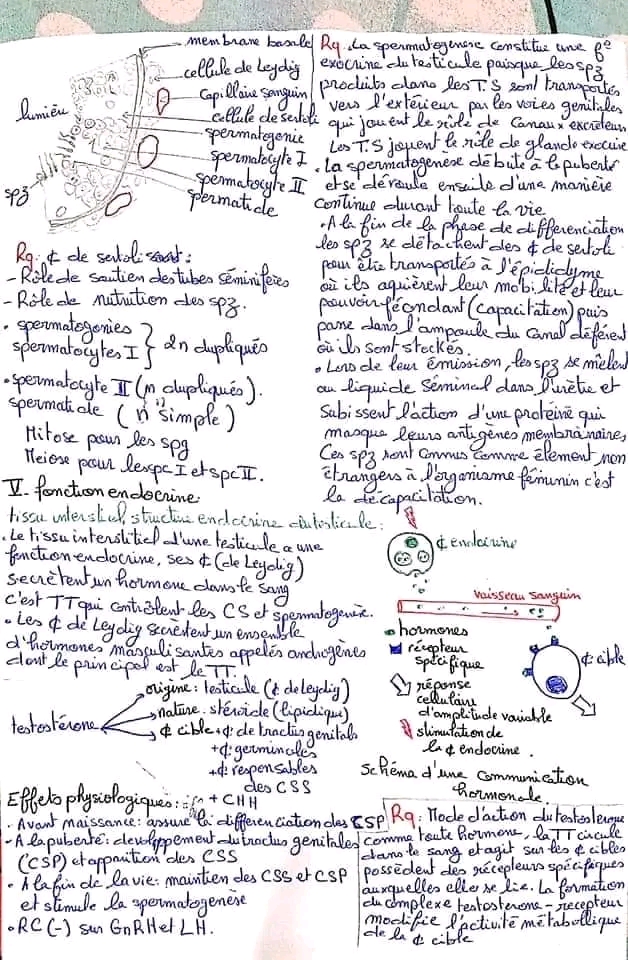 membrane basale
cellule de Leydig
Capillaire sanguin
lumière
cellule de sertoli
spermatogonie
spermatocyte I
spermatocyte II
spermatide
spz
Rq: ¢ de sertoli :
- Rôle de soutien des tubes séminifères
- Rôle de nutrution des spz.
• spermatogonies
spermatocytes I } 2n dupliqués
• spermatocyte II (n dupliqués).
spermatide ( "n" simple )
Mitose pour les spg
Meiose pour les spc I et spc II.
V- fonction endocrine
tissu interstiel, structure endocrine du testicule:
• Le tissu interstitiel d'une testicule a une
fonction endocrine, ses ¢ (de Leydig)
secrètent un hormone dans le sang
c'est TT qui contrôlent les CS et spermatogenèse.
• Les ¢ de Leydig secrètent un ensemble
d'hormones masculisantes appelés androgènes
dont le principal est le TT.
origine: testicule (¢ de leydig)
testostérone
nature: stéroïde (lipidique)
¢ cible + ¢: de tractus genitals
+ ¢: germinales
+ ¢: responsables
des CSS
+ CHH
Effets physiologiques:
- Avant naissance: assure la differenciation des CSP
- A la puberté: developpement du tractus genitales
(CSP) et apparition des CSS
• A la fin de la vie: maintien des CSS et CSP
et stimule la spermatogenèse
• RC (-) sur GnRH et LH.
Rq: La spermatogenese constitue une f°
exocrine du testicule puisque les spz
produits dans les T.S sont transportés
vers l'extérieur par les voies genitales
qui jouent le rôle de Canaux excréteurs
Les T.S jouent le rôle de glande exocrine
• La spermatogenese débute à la puberté
et se déroule ensuite d'une manière
continue durant toute la vie
• A la fin de la phase de différenciation
les spz se détachent des ¢ de sertoli
pour être transportés à l'épididyme
où ils aquièrent leur mobilité et leur
pouvoir fécondant (capacitation) puis
passe dans l'ampoule du Canal déférent
où ils sont stockés.
• Lors de leur émission, les spz se mêlent
au liquide séminal dans l'urètre et
subissent l'action d'une protéine qui
masque leurs antigènes membranaires,
Ces spz sont connus comme élement non
étrangers à l'organisme féminin c'est
la décapacitation.
¢ endocrine
vaisseau sanguin
hormones
récepteur
spécifique
¢ cible
réponse
cellulaire
d'amplitude variable
stimulation de
la ¢ endocrine.
Schéma d'une communication
hormonale.
Rq: Mode d'action du testosterone
comme toute hormone, la TT circule
dans le sang et agit sur les ¢ cibles
possèdent des récepteurs spécifiques
auxquelles elle se lie. La formation
du complexe testosterone - recepteur
modifie l'activité métabollique
de la ¢ cible